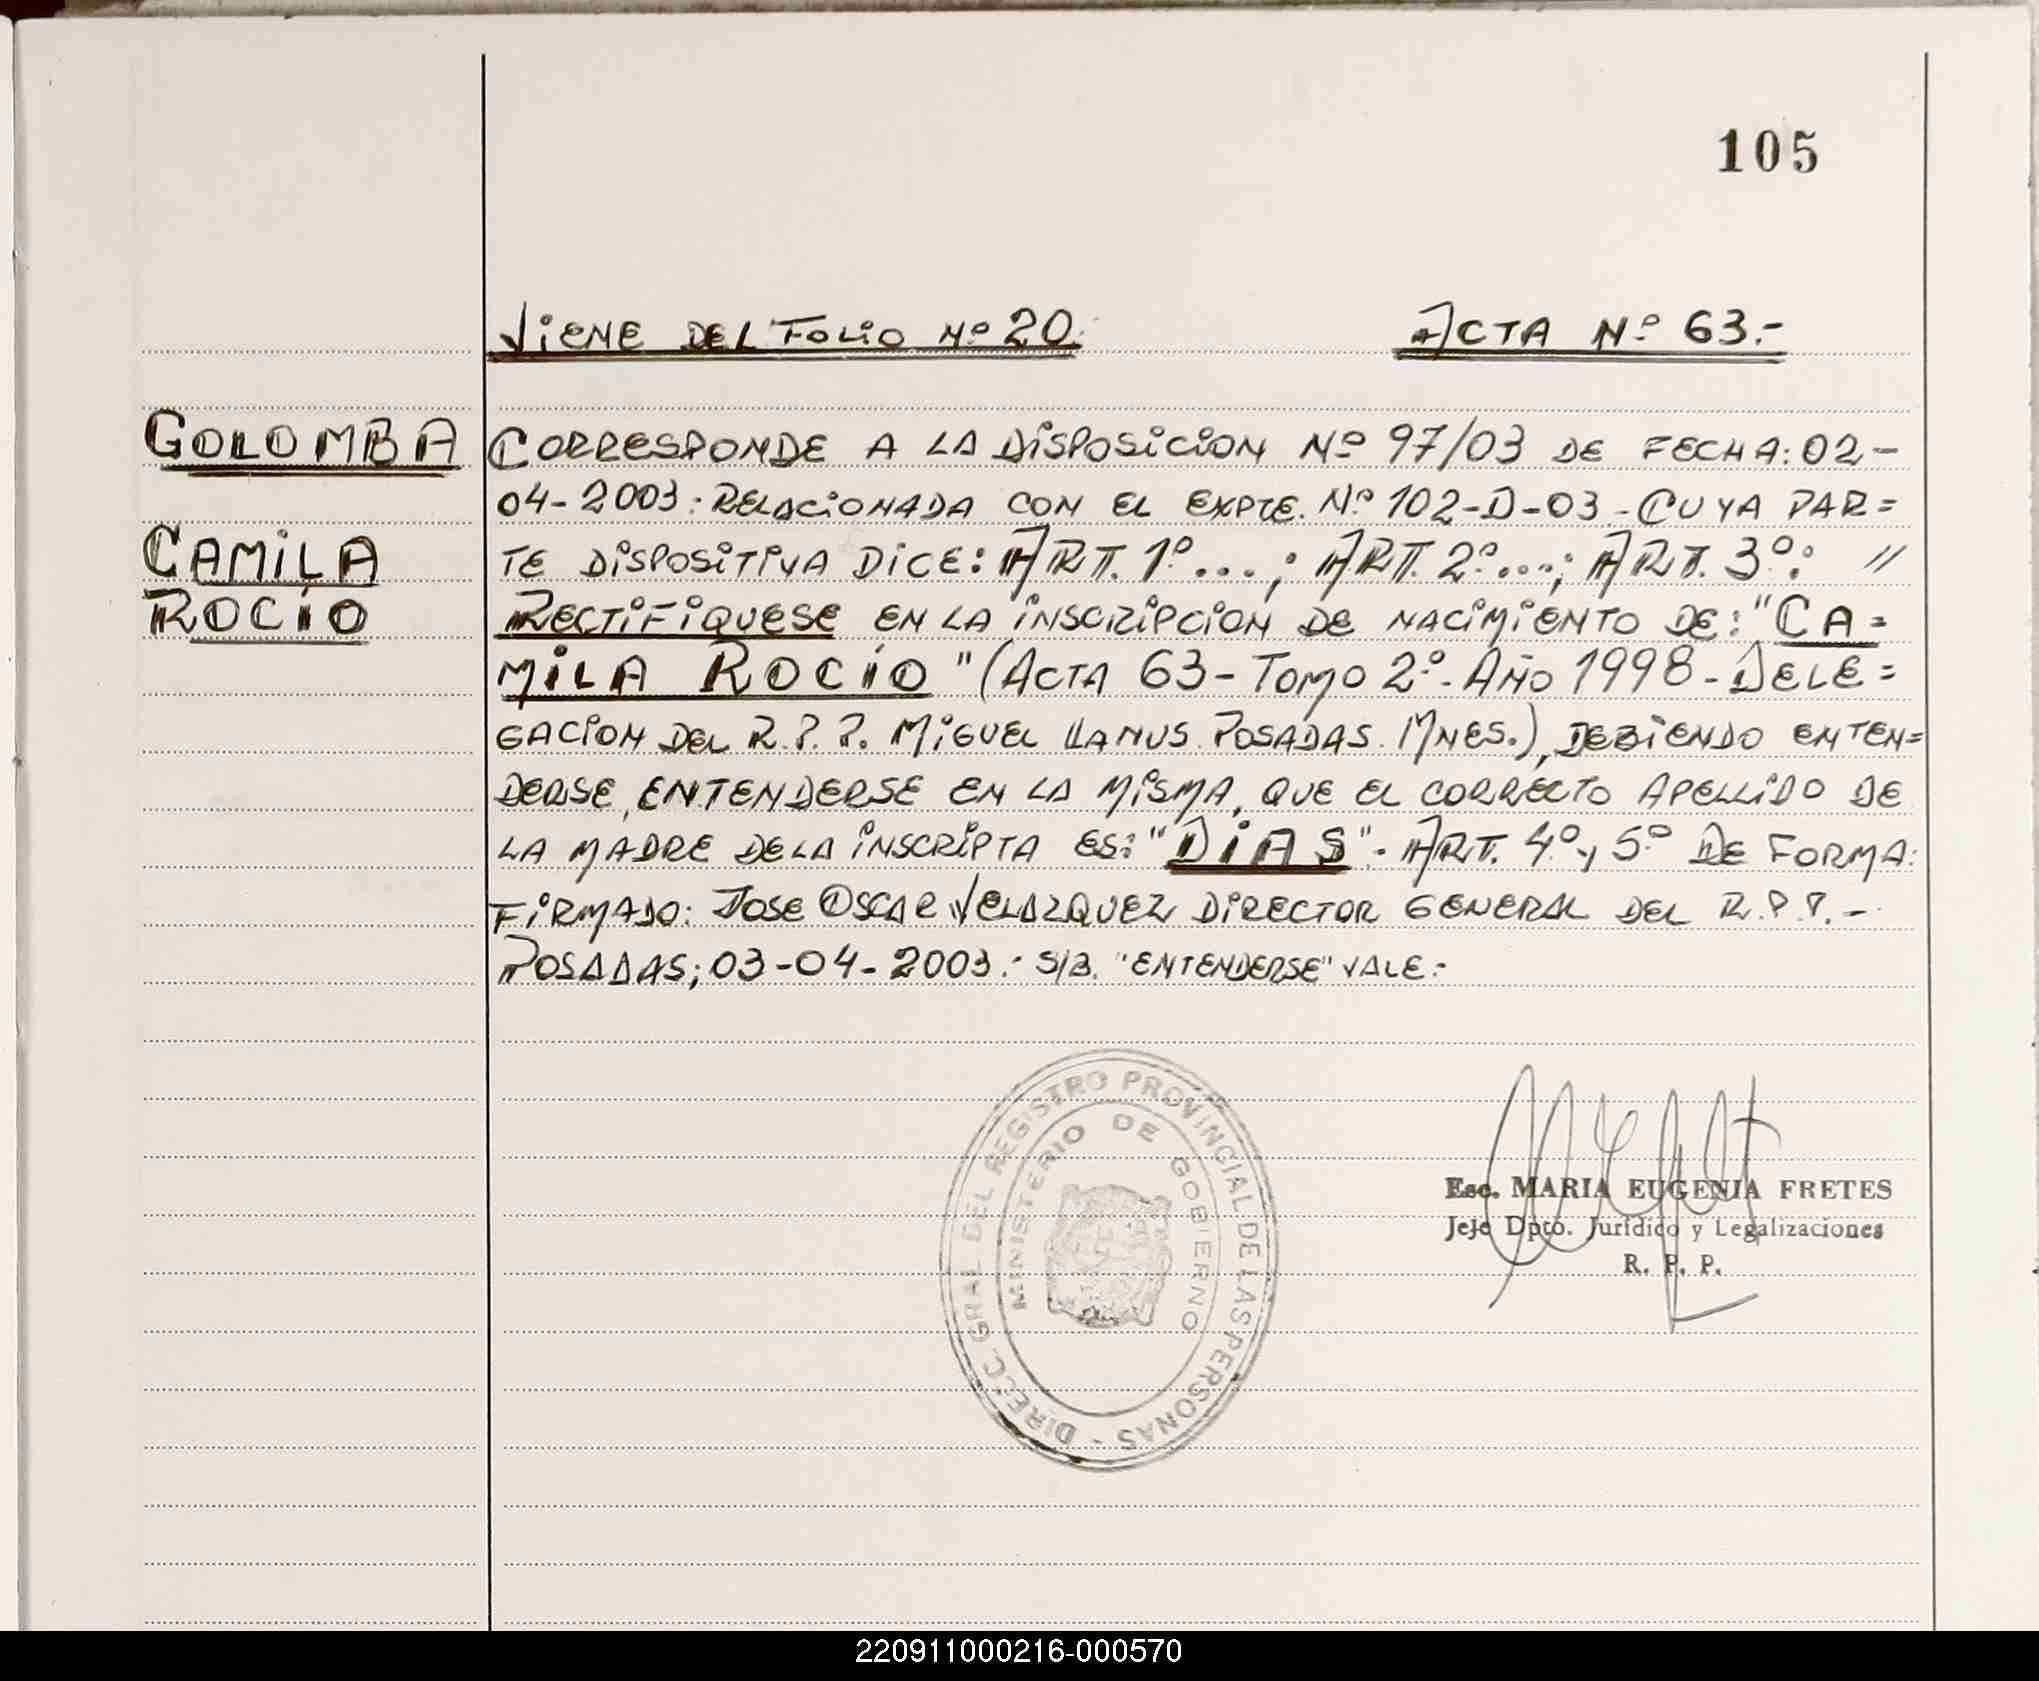 105
VIENE DEL FOLIO Nº 20. ACTA Nº 63.-
GOLOMBA
CAMILA
ROCÍO
CORRESPONDE A LA DISPOSICION Nº 97/03 DE FECHA: 02-
04-2003: RELACIONADA CON EL EXPTE. Nº 102-D-03.- CUYA PAR=
TE DISPOSITIVA DICE: ART. 1º...; ART. 2º...; ART. 3º: //
RECTIFIQUESE EN LA INSCRIPCION DE NACIMIENTO DE: "CA=
MILA ROCÍO" (ACTA 63-TOMO 2º-AÑO 1998-DELE=
GACION DEL R.P.P. MIGUEL LLANUS. POSADAS. MNES.), DEBIENDO ENTEN=
DERSE, ENTENDERSE EN LA MISMA, QUE EL CORRECTO APELLIDO DE
LA MADRE DE LA INSCRIPTA ES: "DIAS".- ART. 4º y 5º DE FORMA:
FIRMADO: JOSE OSCAR VELAZQUEZ DIRECTOR GENERAL DEL R.P.P.-
POSADAS; 03-04-2003.- S/B. "ENTENDERSE" VALE:-
DIRECC. GRAL DEL REGISTRO PROVINCIAL DE LAS PERSONAS -
MINISTERIO DE GOBIERNO
Esc. MARIA EUGENIA FRETES
Jefe Dpto. Jurídico y Legalizaciones
R. P. P.
220911000216-000570